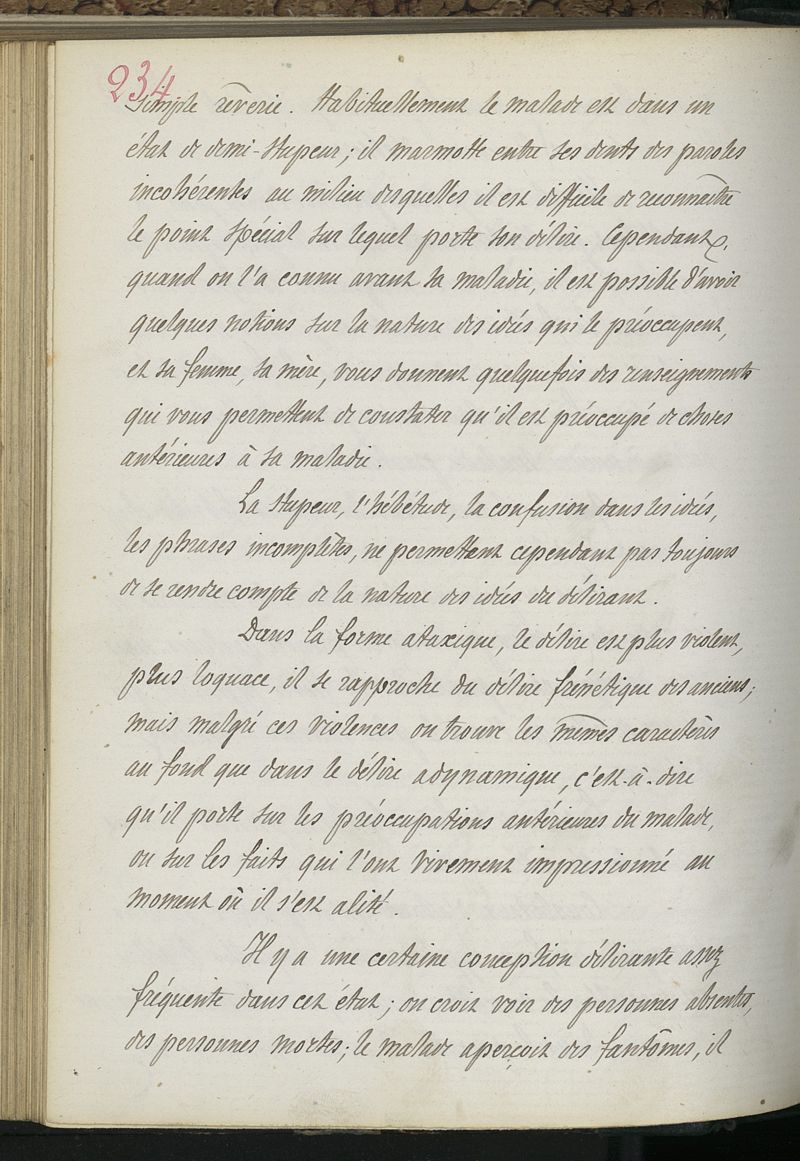 234
Simple rêverie. Habituellement le malade est dans un
état de demi-stupeur; il marmotte entre ses dents des paroles
incohérentes au milieu desquelles il est difficile de reconnaître
le point spécial sur lequel porte son délire. Cependant,
quand on l'a connu avant sa maladie, il est possible d'avoir
quelques notions sur la nature des idées qui le préoccupent,
et sa femme, sa mère, vous donnent quelquefois des renseignements
qui vous permettent de constater qu'il est préoccupé de choses
antérieures à sa maladie.
La stupeur, l'hébétude, la confusion dans les idées,
les phrases incomplètes, ne permettent cependant pas toujours
de se rendre compte de la nature des idées du délirant.
Dans la forme ataxique, le délire est plus violent,
plus loquace, il se rapproche du délire frénétique des anciens;
mais malgré ces violences on trouve les mêmes caractères
au fond que dans le délire adynamique, c'est-à-dire
qu'il porte sur les préoccupations antérieures du malade,
ou sur les faits qui l'ont vivement impressionné au
moment où il s'est alité.
Il y a une certaine conception délirante assez
fréquente dans cet état; on croit voir des personnes absentes,
des personnes mortes; le malade aperçoit des fantômes, il